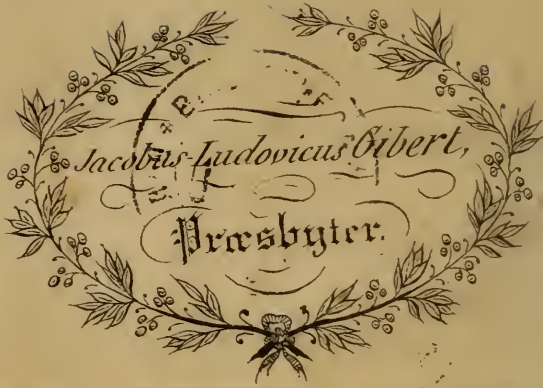 Jacobus-Ludovicus Gibert,
Præsbyter.